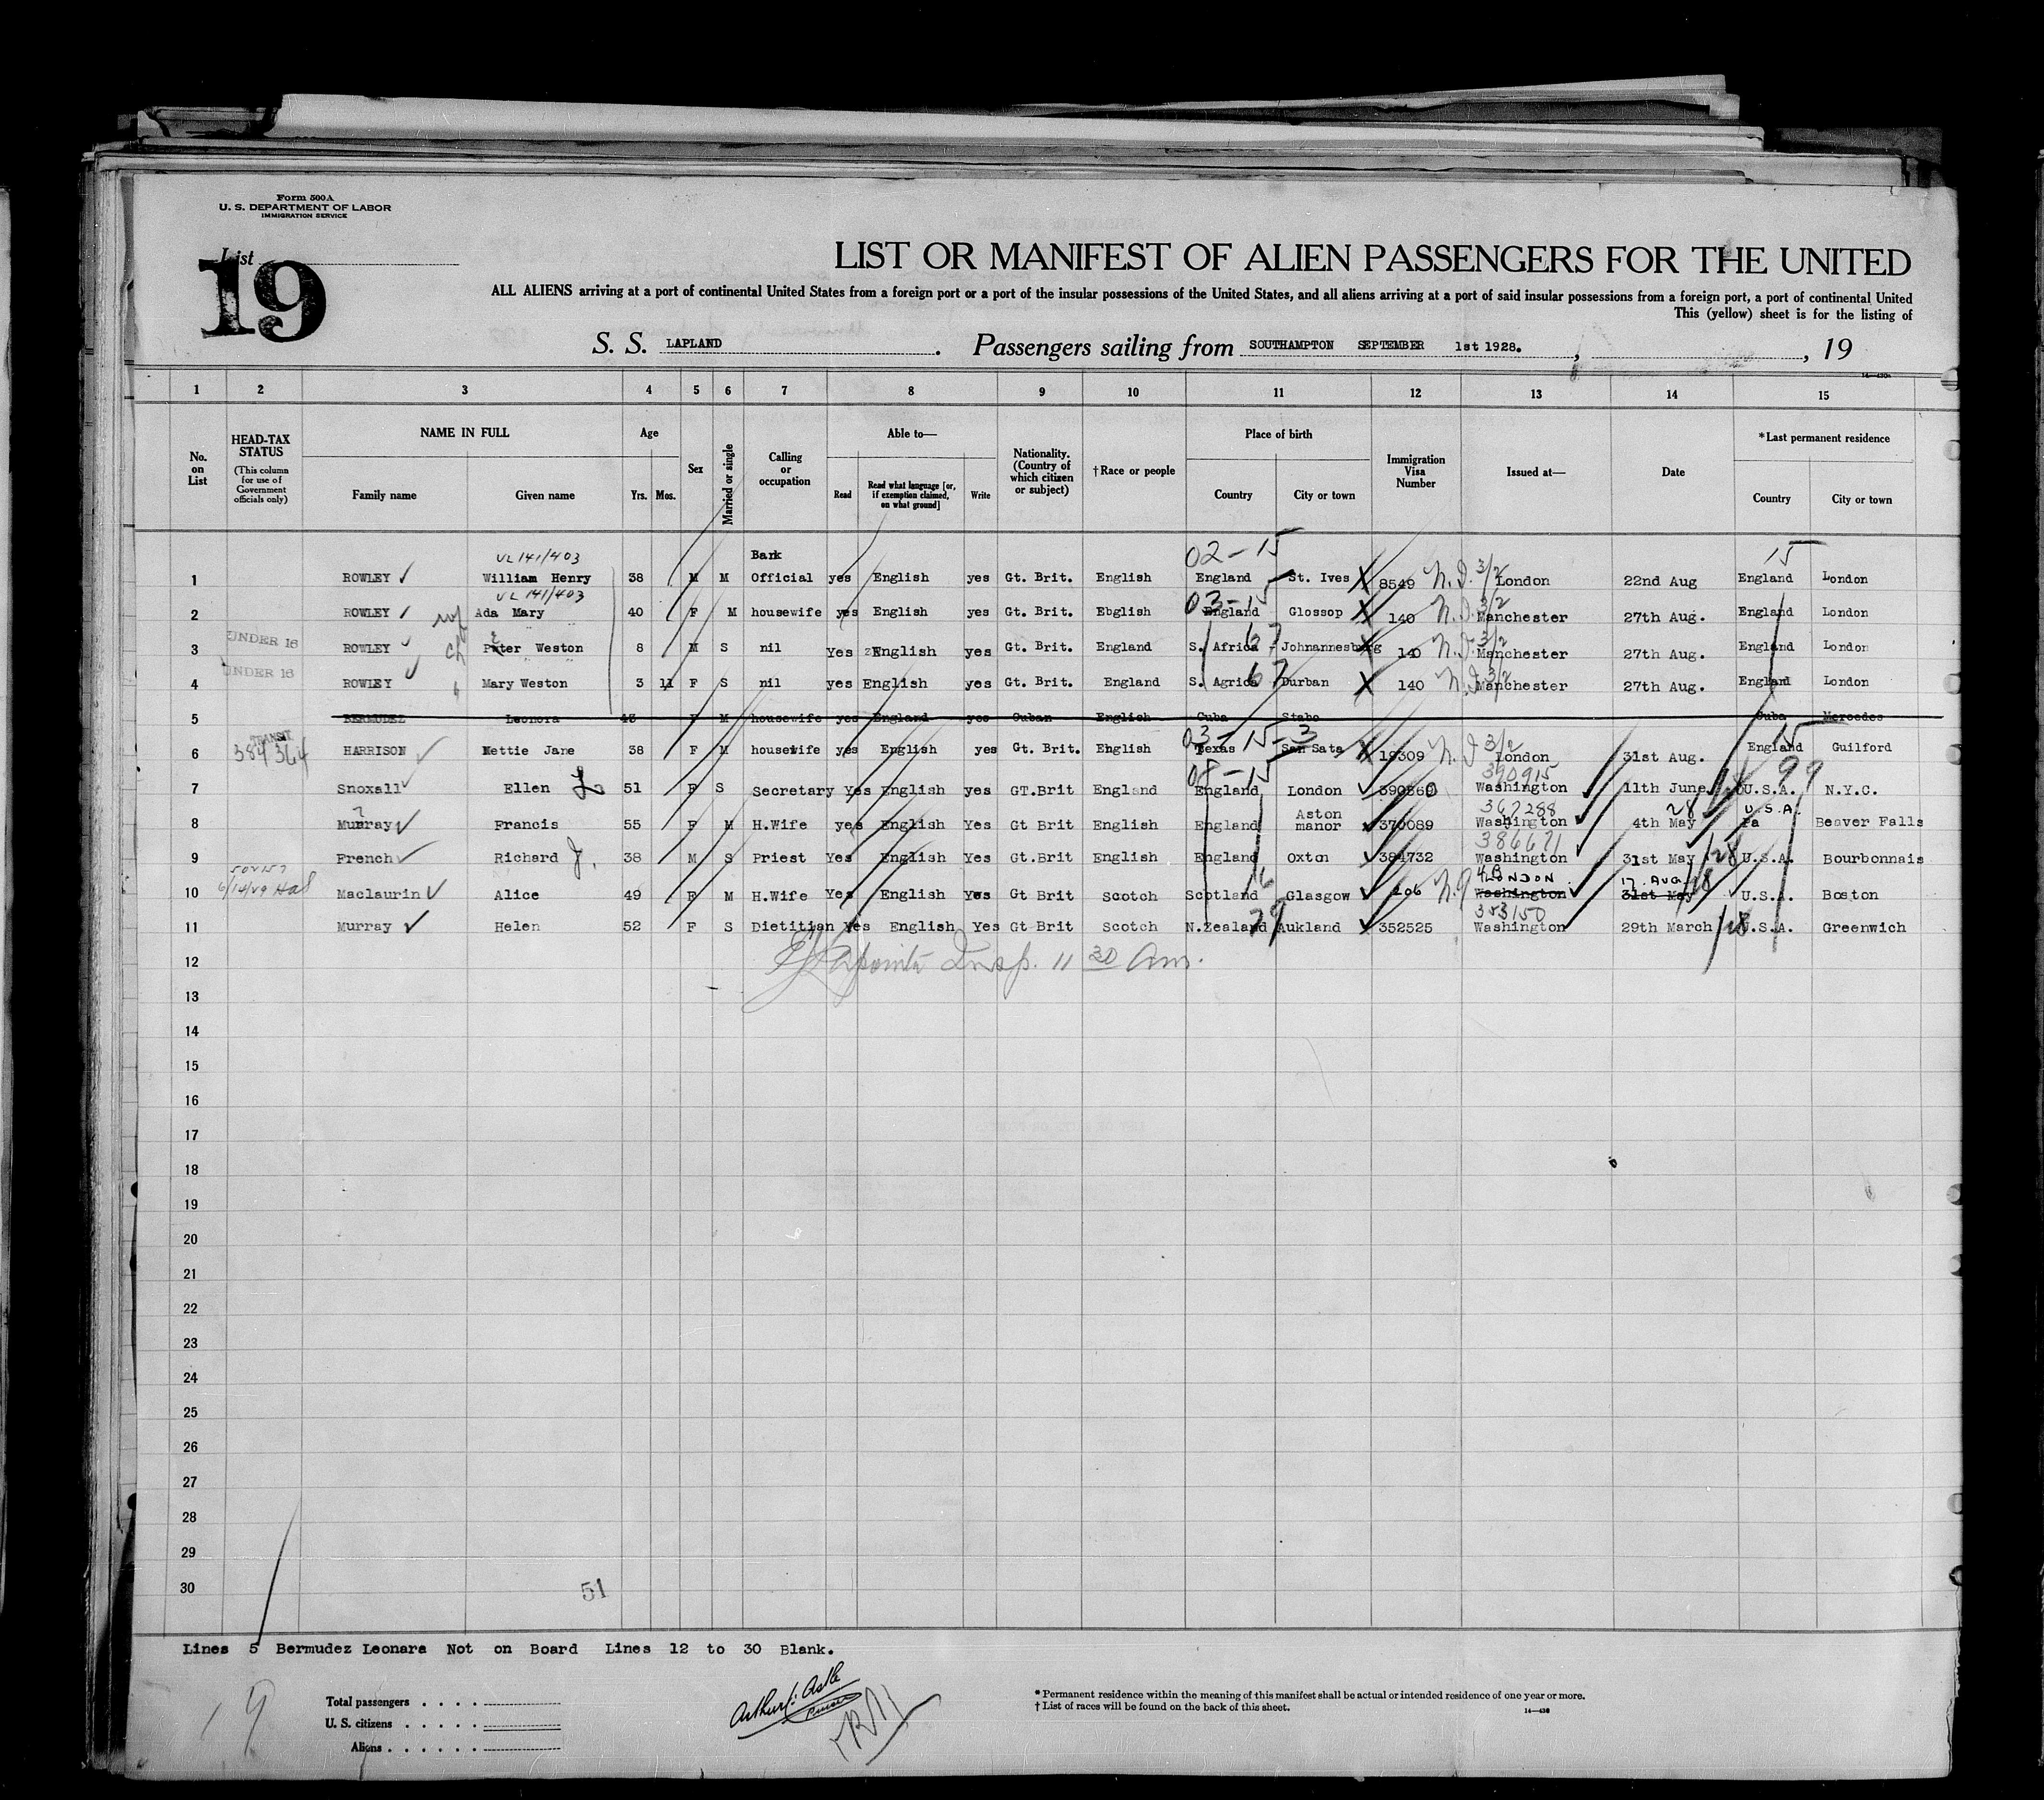 Form 500A
U. S. DEPARTMENT OF LABOR
IMMIGRATION SERVICE
List
19
LIST OR MANIFEST OF ALIEN PASSENGERS FOR THE UNITED
ALL ALIENS arriving at a port of continental United States from a foreign port or a port of the insular possessions of the United States, and all aliens arriving at a port of said insular possessions from a foreign port, a port of continental United
This (yellow) sheet is for the listing of
S. S. LAPLAND. Passengers sailing from SOUTHAMPTON SEPTEMBER 1st 1928. , , 19
1 2 3 4 5 6 7 8 9 10 11 12 13 14 15
No. on List
HEAD-TAX STATUS (This column for use of Government officials only)
NAME IN FULL
Family name Given name
Age
Yrs. Mos.
Sex
Married or single
Calling or occupation
Able to—
Read
Read what language [or, if exemption claimed, on what ground]
Write
Nationality. (Country of which citizen or subject)
†Race or people
Place of birth
Country City or town
Immigration Visa Number
Issued at—
Date
*Last permanent residence
Country City or town
VL 141/403 Bank 02-15 15
1 ROWLEY William Henry 38 M M Official yes English yes Gt. Brit. English England St. Ives 8549 N.I. 3/2 London 22nd Aug England London
VL 141/403 03-15
2 ROWLEY wf Ada Mary 40 F M housewife yes English yes Gt. Brit. Ebglish England Glossop 140 N.I. 3/2 Manchester 27th Aug. England London
3 UNDER 16 ROWLEY ch Peter Weston 8 M S nil Yes English yes Gt. Brit. England S. Africa 67 Johnannesburg 140 N.I. 3/2 Manchester 27th Aug. England London
4 UNDER 16 ROWLEY Mary Weston 3 11 F S nil yes English yes Gt. Brit. England S. Agrica 67 Durban 140 N.I. 3/2 Manchester 27th Aug. England London
5 BERMUDEZ Leonora 43 F M housewife yes England yes Cuban English Cuba Stabo Cuba Mercedes
TRANSIT 03-15-3 15
6 384364 HARRISON Nettie Jane 38 F M housewife yes English yes Gt. Brit. English Texas San Sata 19309 N.I 3/2 London 31st Aug. England Guilford
08-15 390915 99
7 Snoxall Ellen L. 51 F S Secretary Yes English yes GT.Brit England England London 390560 Washington 11th June U.S.A. N.Y.C.
Aston 367288 28 U.S.A.
8 Murray Francis 55 F M H.Wife yes English Yes Gt Brit English England manor 370089 Washington 4th May Pa Beaver Falls
386671
9 French Richard J. 38 M S Priest Yes English Yes Gt.Brit English England Oxton 384732 Washington 31st May /28 U.S.A. Bourbonnais
502157 LONDON 17 AUG
10 6/14/29 Maclaurin Alice 49 F M H.Wife Yes English Yes Gt Brit Scotch Scotland Glasgow 106 Washington 31st May U.S.A. Boston
353150
11 Murray Helen 52 F S Dietitian Yes English Yes Gt Brit Scotch N.Zealand 79 Aukland 352525 Washington 29th March /28 U.S.A. Greenwich
12 Insp. 11 30 Am.
13
14
15
16
17
18
19
20
21
22
23
24
25
26
27
28
29
30
51
Lines 5 Bermudez Leonara Not on Board Lines 12 to 30 Blank.
19
Total passengers
U. S. citizens
Aliens
Purser
* Permanent residence within the meaning of this manifest shall be actual or intended residence of one year or more.
† List of races will be found on the back of this sheet.
14—430